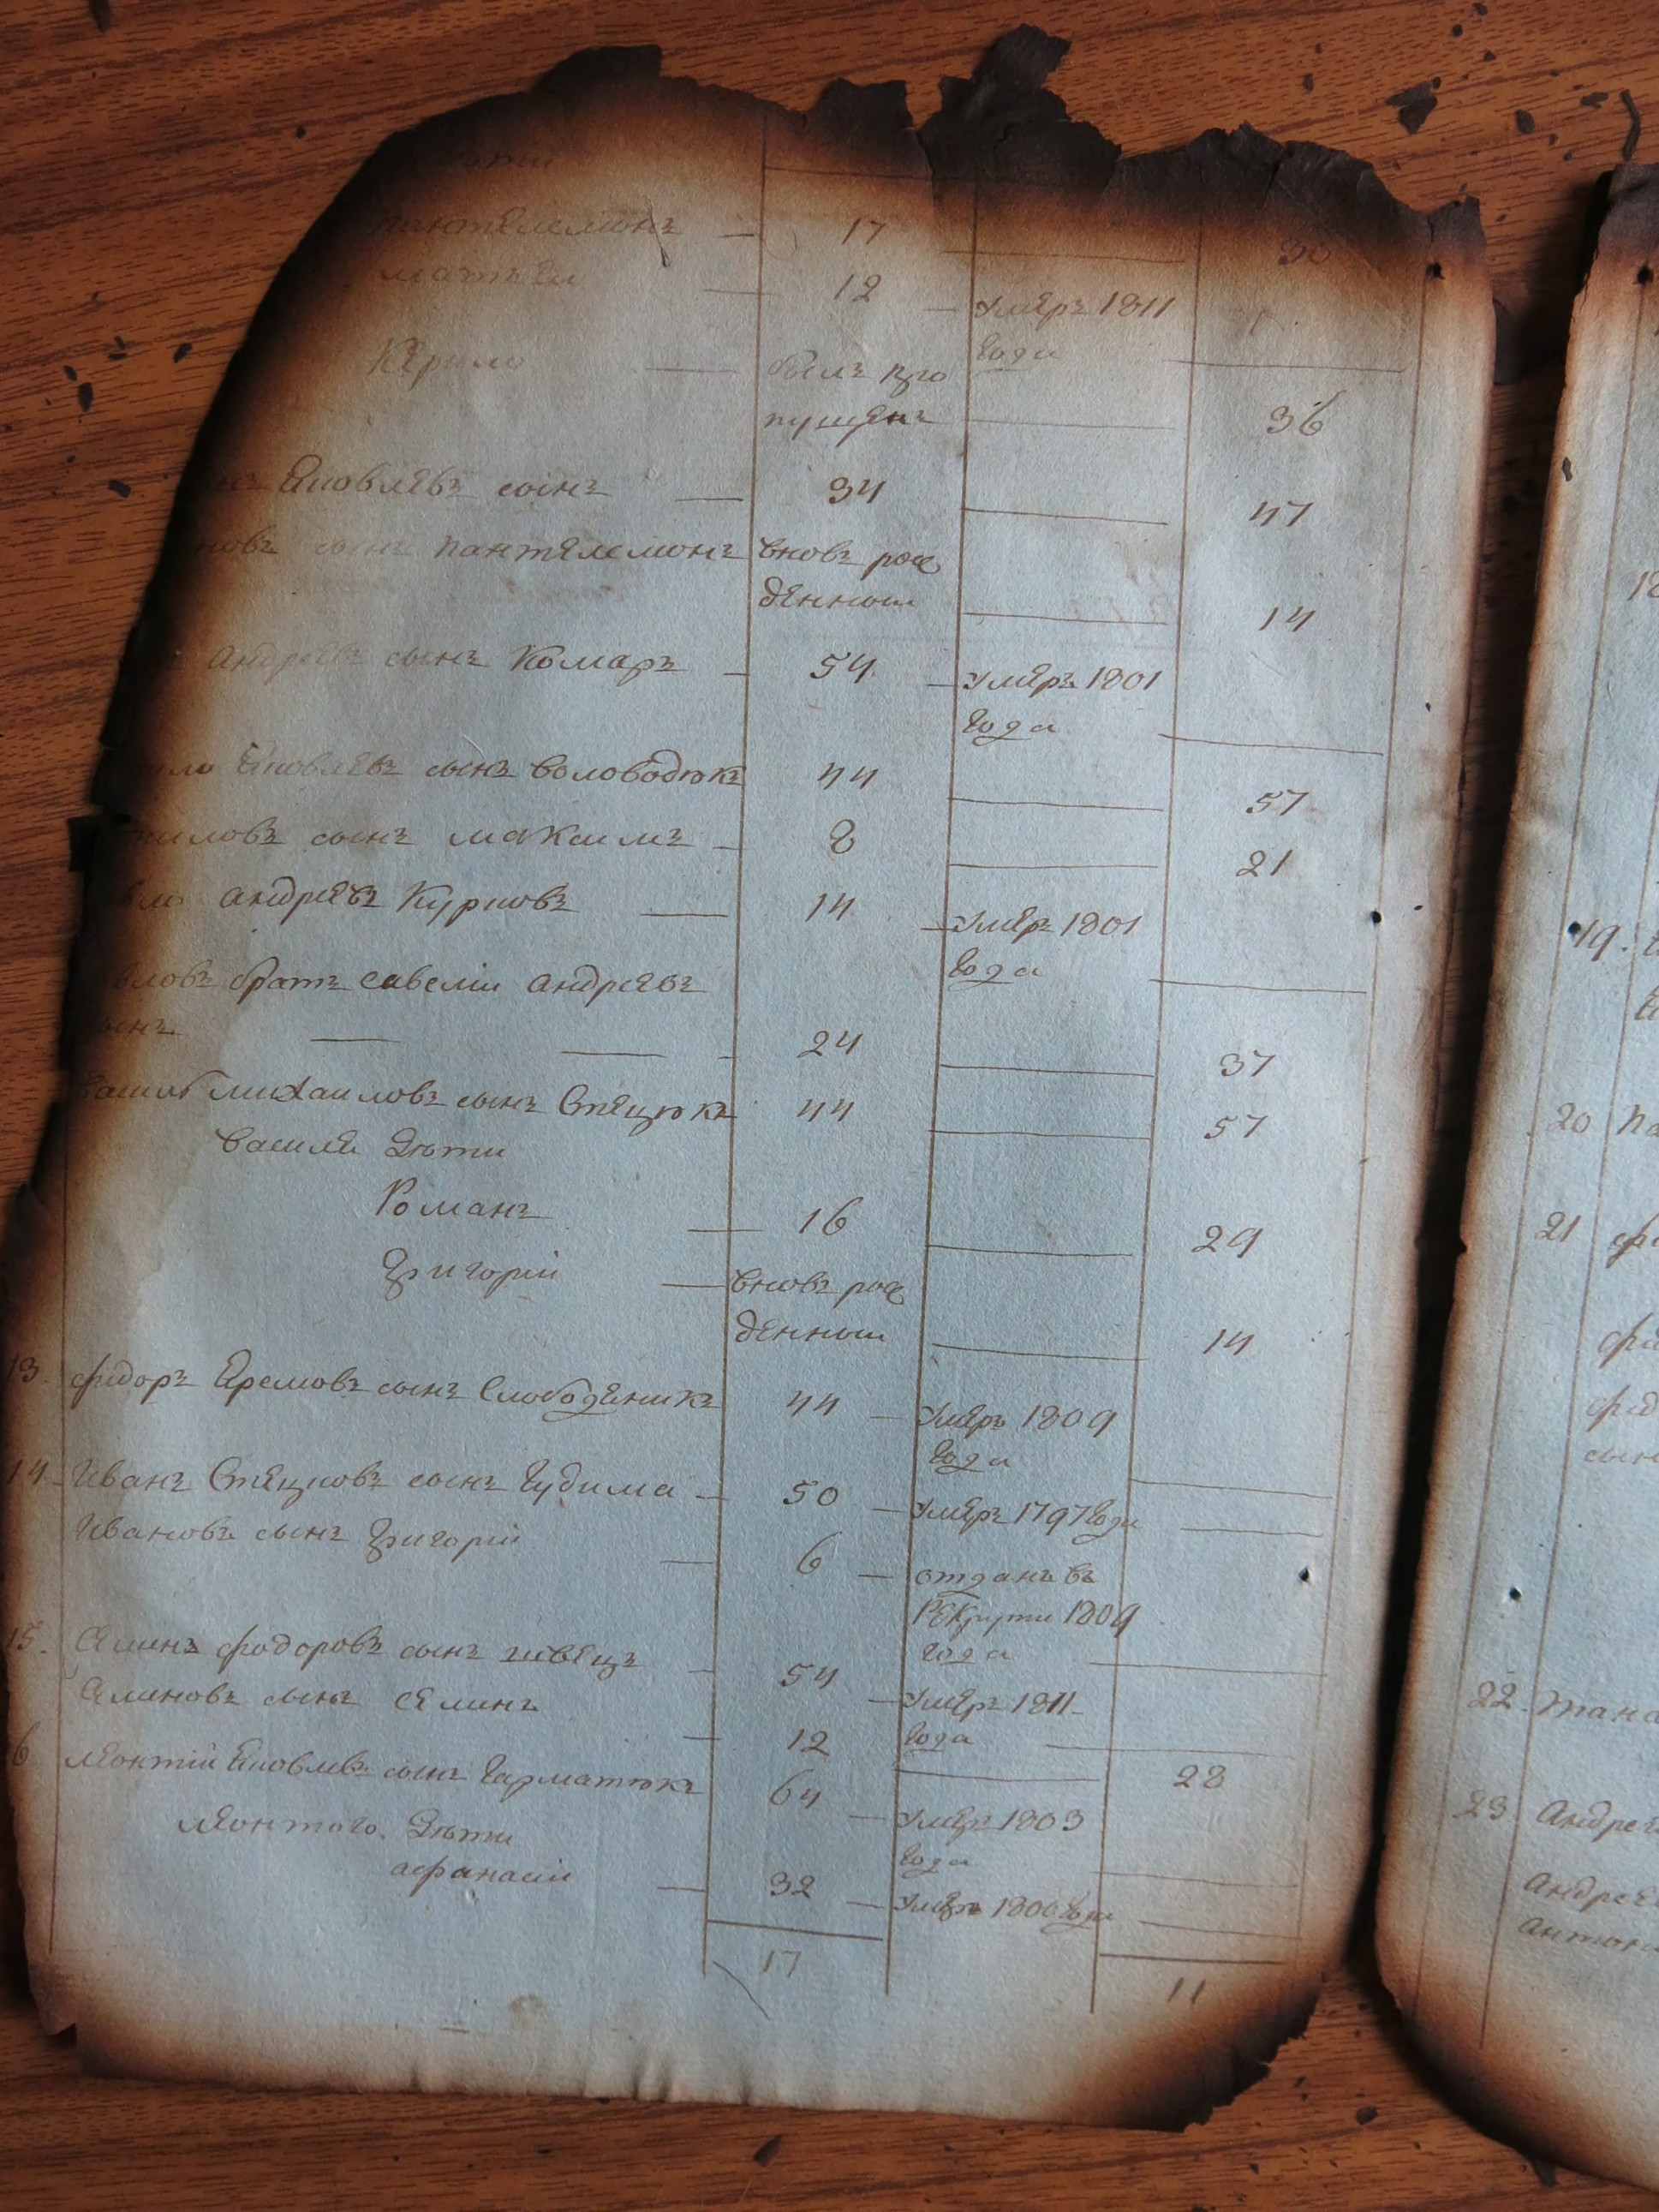 Пантелемонъ — 17 — 30
Матвеи — 12 — умеръ 1811
года
Кирило — былъ про
пущенъ — 36
Яковлевъ сынъ — 34 — 47
новъ сынъ Пантелемонъ вновь рож
денныи — 14
Андреевъ сынъ Комаръ — 54 — умеръ 1801
года
ило Яковлевъ сынъ Воловодюкъ 44 — 57
иловъ сынъ Максимъ — 8 — 21
Андреевъ Курковъ — 14 — умеръ 1801
года
вловъ братъ Савелии Андреевъ
сынъ — 24 — 37
Василь Михаиловъ сынъ Стецюкъ 44 — 57
Василя дѣти
Романъ — 16 — 29
Григорій — вновь рож
денныи — 14
13. Федоръ Яремовъ сынъ Слободеникъ 44 — умеръ 1809
года
14. Иванъ Стецковъ сынъ Гудима — 50 — умеръ 1797 года
Ивановъ сынъ Григорій — 6 — отданъ въ
рекруты 1809
года
15. Семенъ Федоровъ сынъ Швецъ — 54 — умеръ 1811
года
Семеновъ сынъ Семенъ — 12 — 28
6 Леонтій Яковлевъ сынъ Гарматюкъ 64 — умеръ 1803
года
Леонтого дѣти
Афанасій — 32 — умеръ 1806 года
17 11
18
19.
20 Па
21 Фе
Фе
Фед
сын
22. Тана
23 Андре
Андрее
Антон